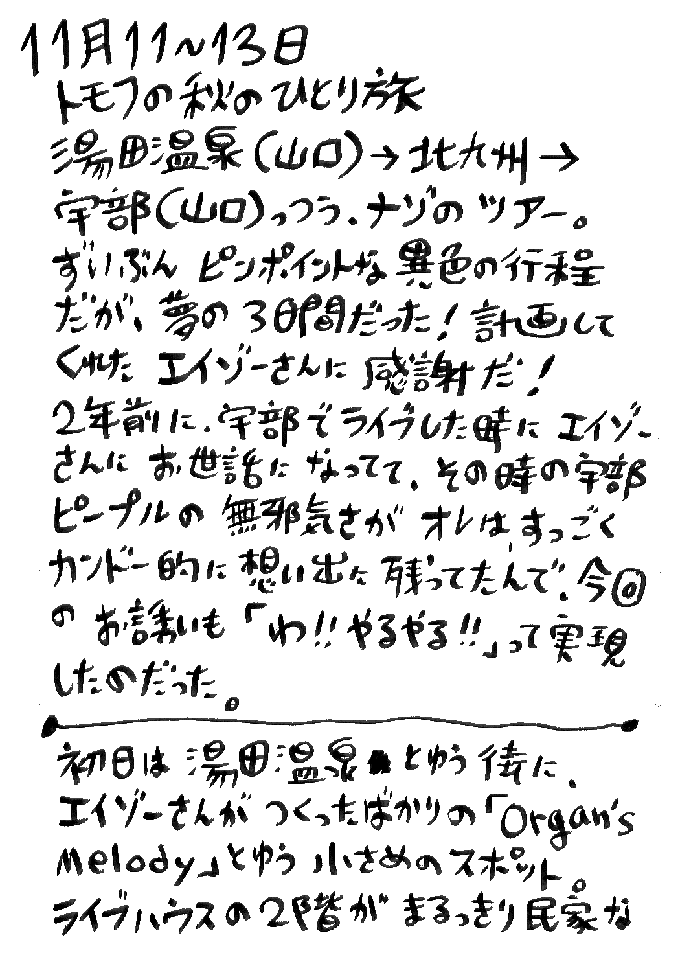 11月11~13日
トモフの秋のひとり旅
湯田温泉(山口)→北九州→
宇部(山口)っつう、ナゾのツアー。
ずいぶん ピンポイントな 異色の行程
だが、夢の3日間だった!計画して
くれた エイゾーさんに 感謝だ!
2年前に、宇部でライブした時に エイゾー
さんに お世話に なってて、その時の宇部
ピープルの 無邪気さが オレは、すっごく
カンドー的に 想い出に 残ってたんで、今回
の お誘いも「わ!!やるやる!!」って実現
したのだった。
初日は 湯田温泉 とゆう 街に、
エイゾーさんが つくったばかりの「Organ's
Melody」とゆう 小さめの スポット。
ライブハウスの 2階が まるっきり 民家な